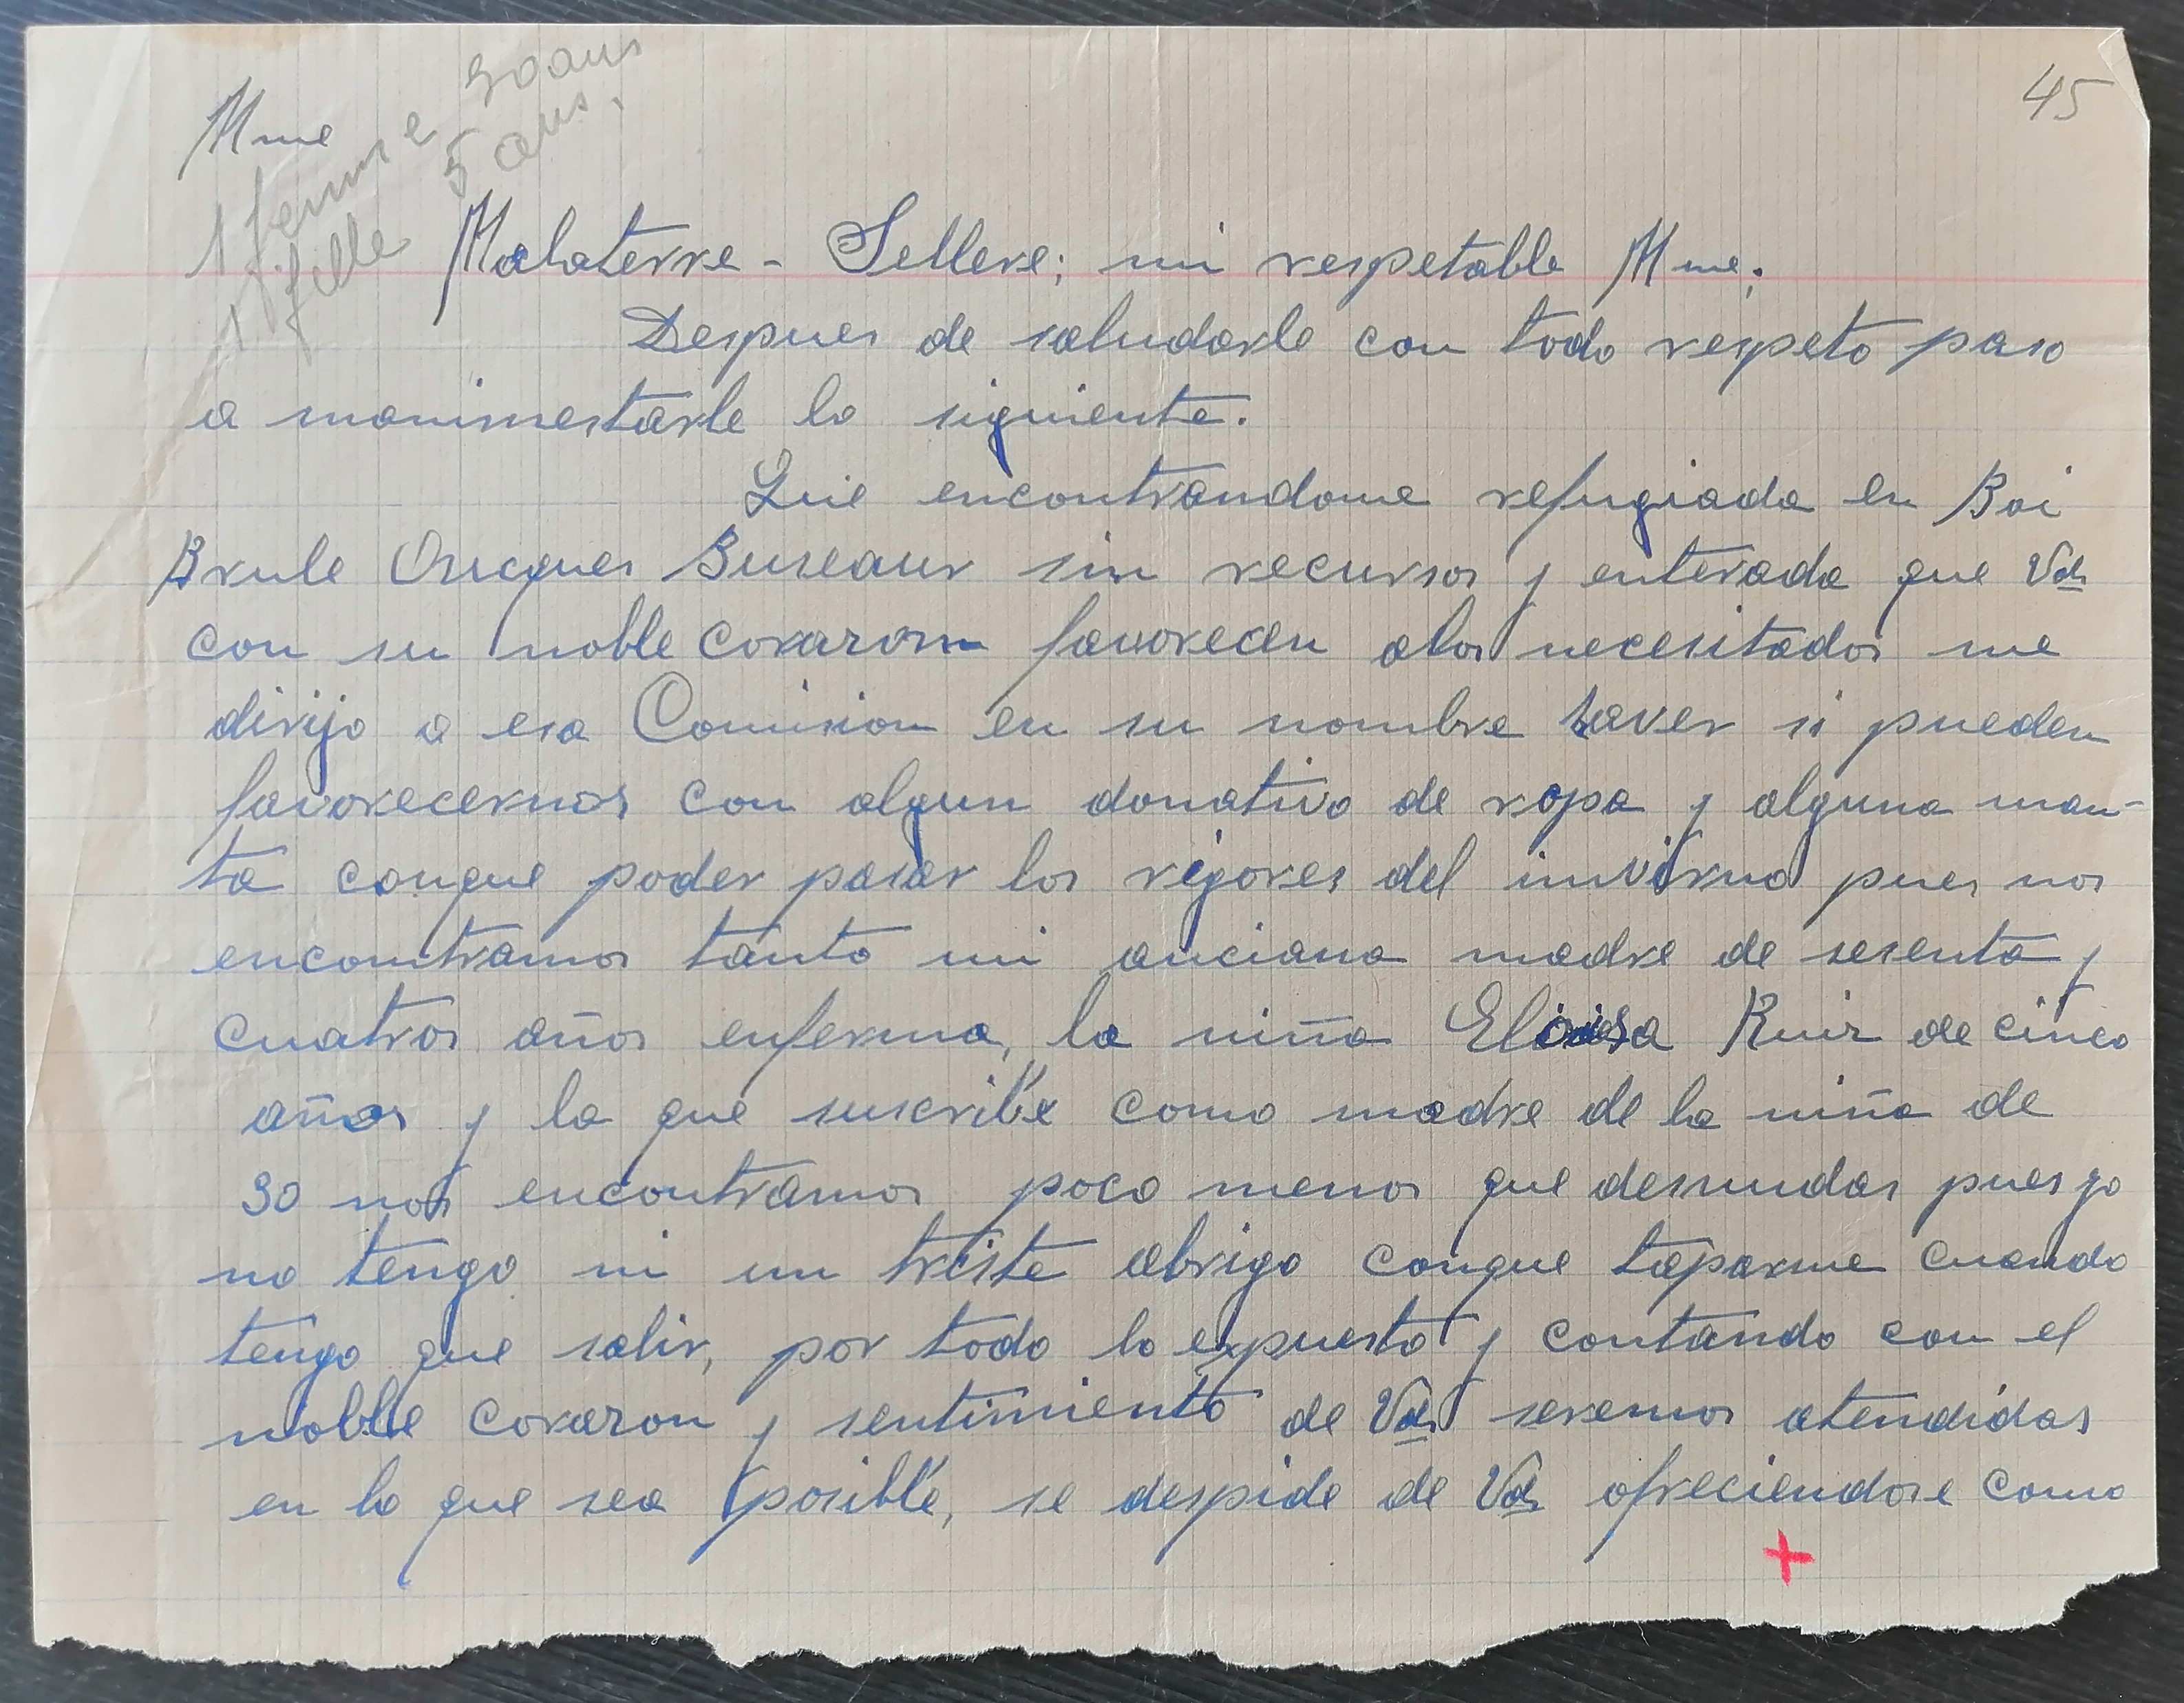 45
Mme
1 femme 30 ans
1 fille 5 ans.
Malaterre - Sellere; mi respetable Mme;
Despues de saludarle con todo respeto paso
a manimestarle lo siguiente.
Que encontrandome refugiada en Boi
Brule Ouques Bureaux sin recursos y enterada que Vds
con su noble corazon favorecen alos necesitados me
dirijo a esa Comision en su nombre haver si pueden
favorecernos con algun donativo de ropa y alguna man-
ta conque poder pasar los rigores del invirno pues nos
encontramos tanto mi anciana madre de sesenta y
cuatros años enferma, la niña Eloisa Ruiz de cinco
años y la que suscribe como madre de la niña de
30 nos encontramos poco menos que desnudas pues yo
no tengo ni un triste abrigo conque taparme cuando
tengo que salir, por todo lo expuesto y contando con el
noble corazon y sentimiento de Vds seremos atendidas
en lo que sea posible, se despide de Vds ofreciendose como